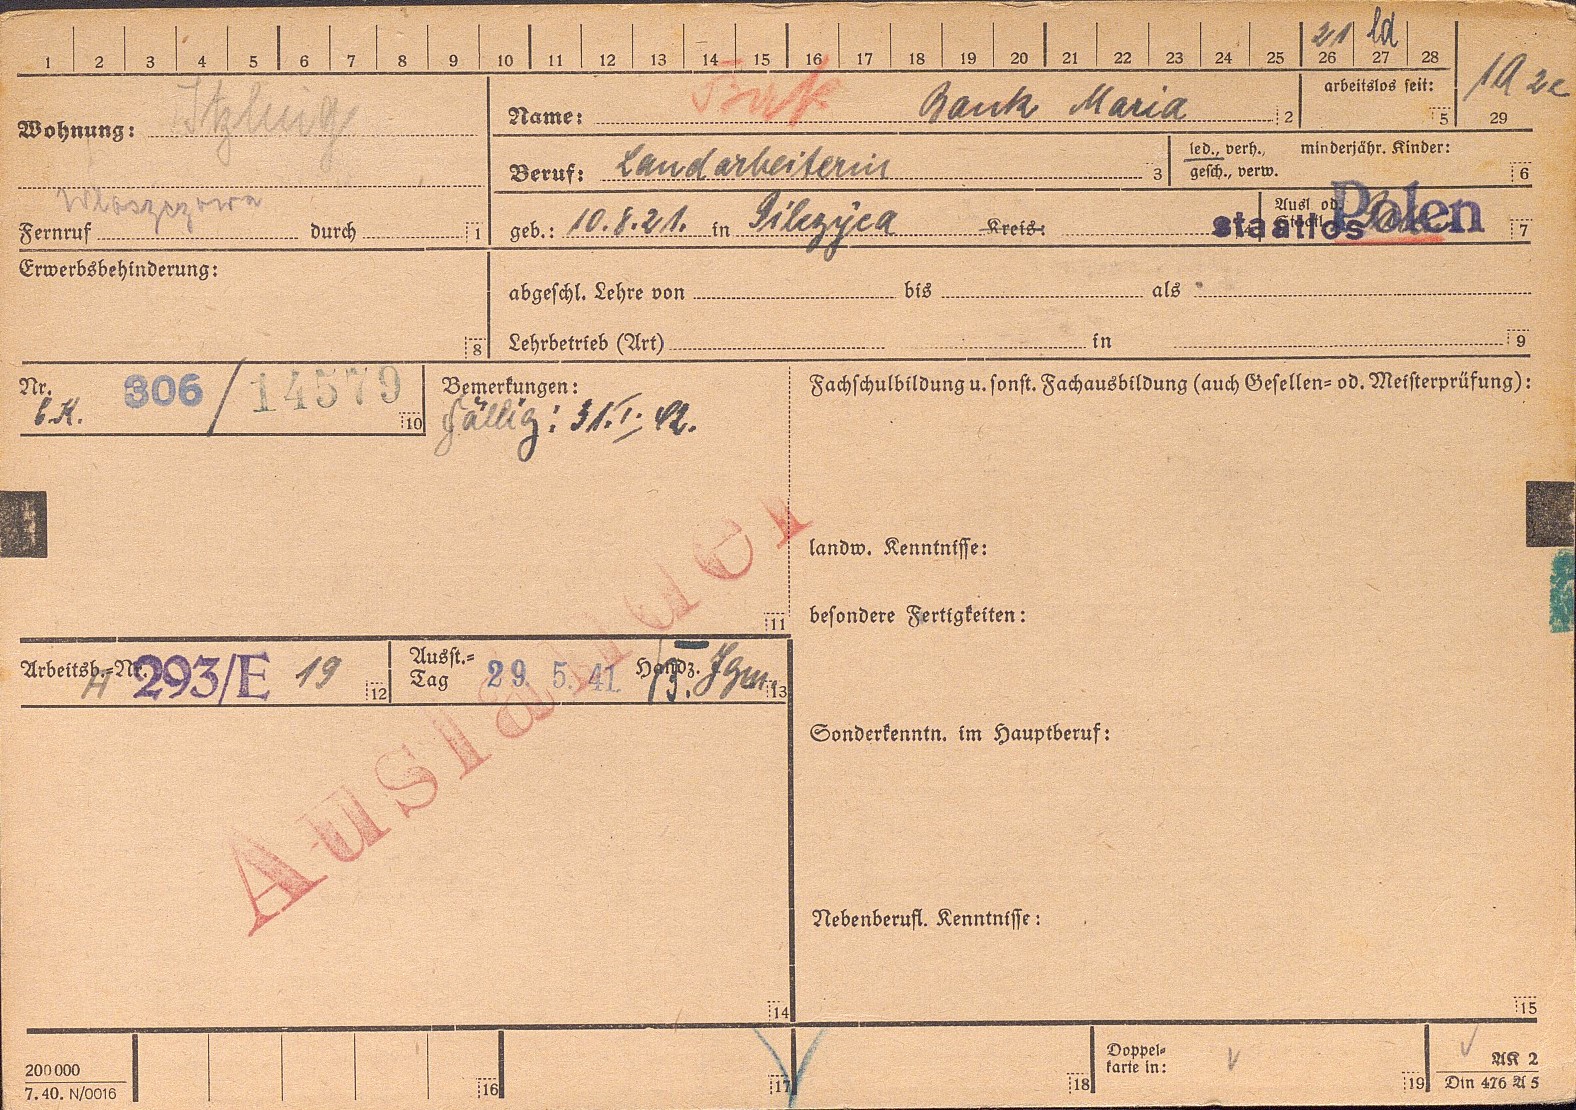 1 2 3 4 5 6 7 8 9 10 11 12 13 14 15 16 17 18 19 20 21 22 23 24 25 26 27 28 29
21 ld
arbeitslos seit: 5
Wohnung: Itzling
Name: Bank Maria 2
Beruf: Landarbeiterin 3
led., verh., minderjähr. Kinder:
gesch., verw. 6
Wloszczowa
Fernruf durch 1
geb.: 10.8.21. in Pilczyca Kreis: 4
Ausl. od. Staatl. 7
staatlos Polen
Erwerbsbehinderung: 8
abgeschl. Lehre von bis als
Lehrbetrieb (Art) in 9
Nr. 306 / 14579 10
Bemerkungen:
fällig: 31.I.42.
Fachschulbildung u. sonst. Fachausbildung (auch Gesellen= od. Meisterprüfung):
landw. Kenntnisse:
besondere Fertigkeiten:
11
Arbeitsb.=Nr. 293/E 19 12
Ausst.=Tag 29. 5. 41 Handz. 13
Ausländer
Sonderkenntn. im Hauptberuf:
Nebenberufl. Kenntnisse:
14
15
200 000
7. 40. N/0016
16
17
18
Doppel=
karte in: 19
AK 2
Din 476 A 5